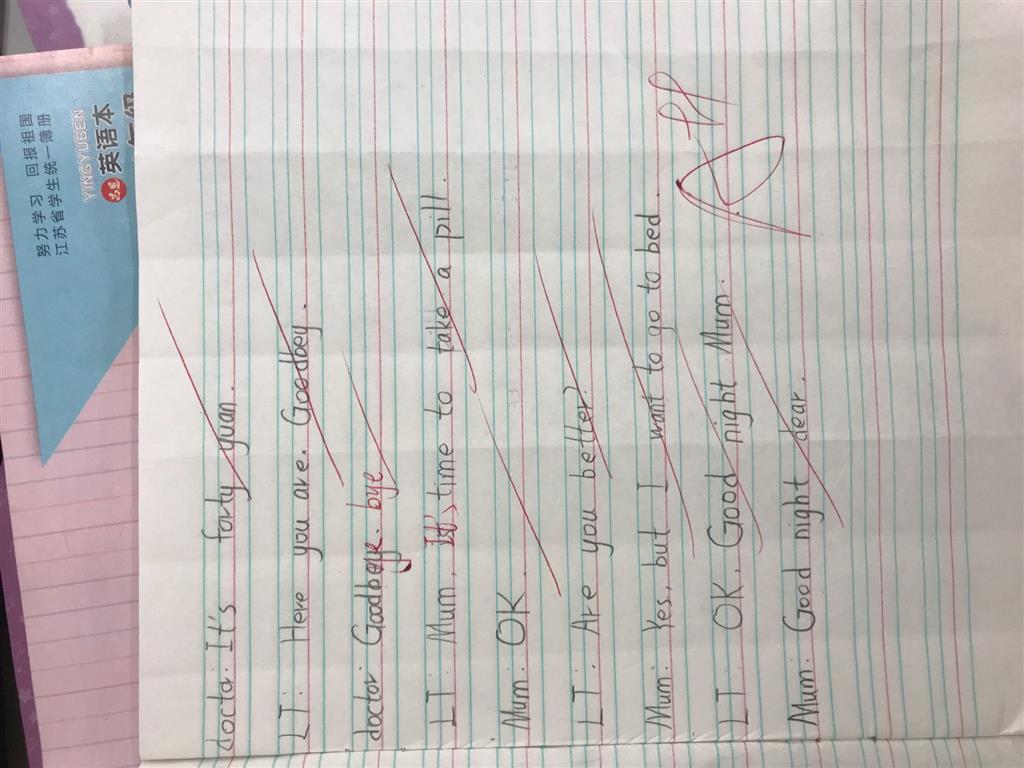 努力学习 回报祖国
江苏省学生统一簿册
YINGYUBEN
英语本
doctor: It's forty yuan.
LT: Here you are. Goodbey.
doctor: Goodbye. bye
LT: Mum, It's time to take a pill.
Mum: OK.
LT: Are you better?
Mum: Yes, but I want to go to bed.
LT: OK. Good night Mum.
Mum: Good night dear.